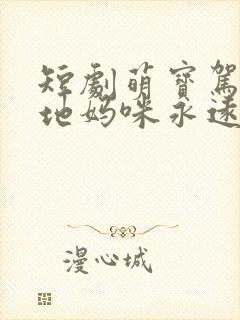 短劇萌寶駕
地媽咪永遠
漫心城